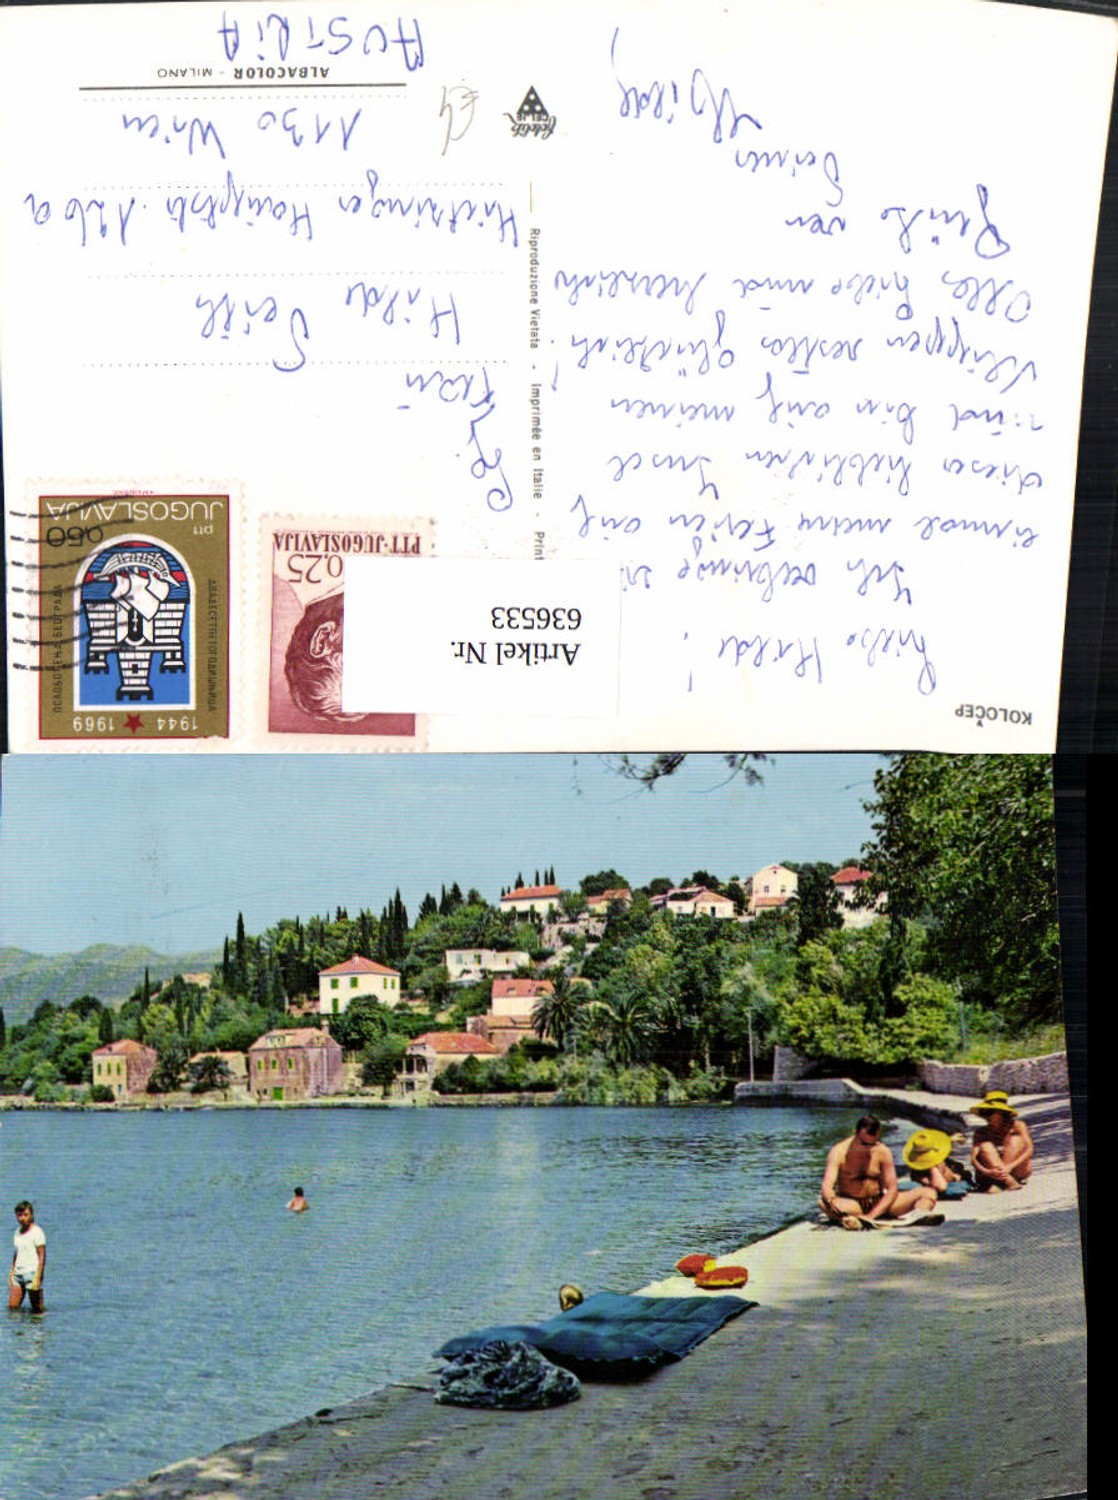 KOLOČEP
Liebe Hilde!
Ich verbringe wie
einmal meine Ferien auf
dieser lieblichen Insel
und bin auf meinen
Klippen restlos glücklich!
Alles Liebe und herzliche
Grüße von
Deiner
Riproduzione Vietata - Imprimée en Italie - Print
CELJE
Frau
Hilde
Hietzinger Hauptstr. 126a
1130 Wien
ALBACOLOR - MILANO
AUSTRIA
Artikel Nr.
636533
PTT-JUGOSLAVIJA
0.25
1944 1969
ДВАДЕСЕТПЕТОГОДИШЊИЦА
ОСЛОБОЂЕЊА БЕОГРАДА
0,50
PTT JUGOSLAVIJA